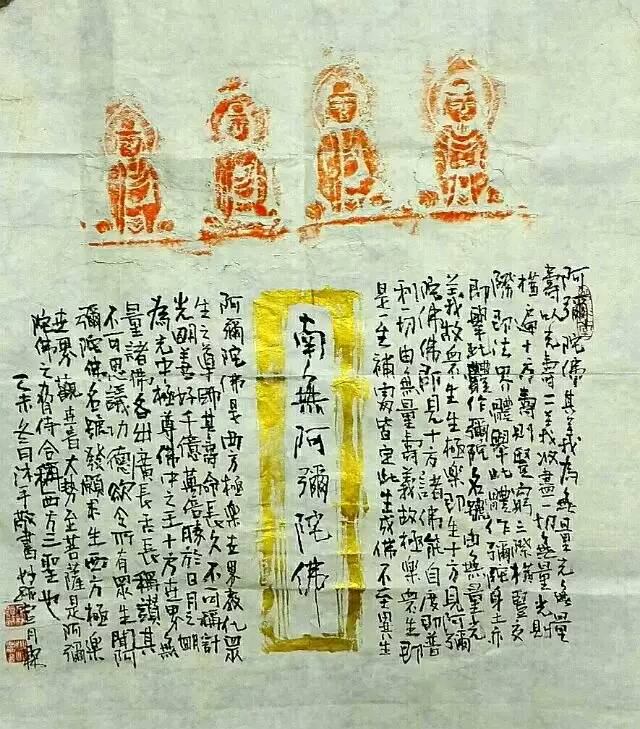 阿彌陀佛其義為無量光無量
壽以光壽二義收盡一切無量光則
橫遍十方壽則豎窮三際橫豎交
際即法界體舉此體作彌陀身土亦
即舉此體作彌陀名號由無量光
義故眾生生極樂即生十方見阿彌
陀佛即見十方諸佛能自度即普
利一切由無量壽義故極樂眾生即
是一生補處皆定此生成佛不至異生
南無阿彌陀佛
阿彌陀佛是西方極樂世界教化眾
生之導師其壽命長久不可稱計
光明善好千億萬倍勝於日月之明
為光中極尊佛中之王十方世界無
量諸佛各出廣長舌長稱讚其
不可思議功德欲令所有眾生聞阿
彌陀佛名號發願求生西方極樂
世界觀世音大勢至菩薩是阿彌
陀佛之脅侍合稱西方三聖也
乙未冬日沐手敬書